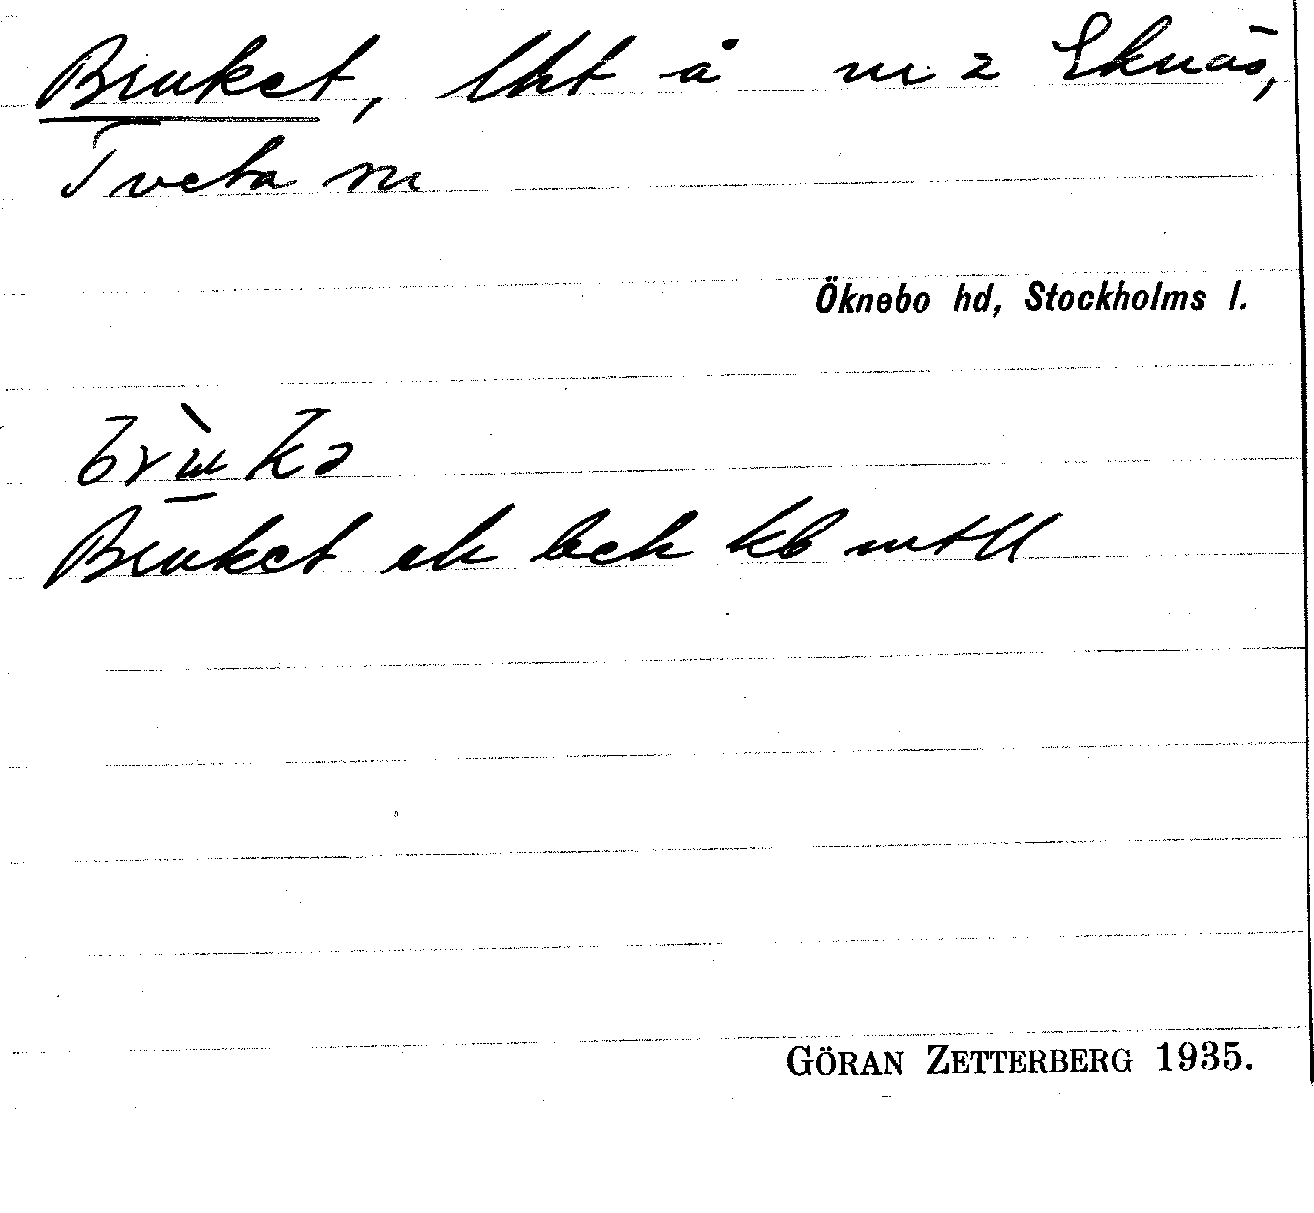 Bruket, lht å nr 2 Eknäs,
Tveta sn
Öknebo hd, Stockholms l.
brɯ̲̀kə
Bruket ek beh kb mtll
GÖRAN ZETTERBERG 1935.